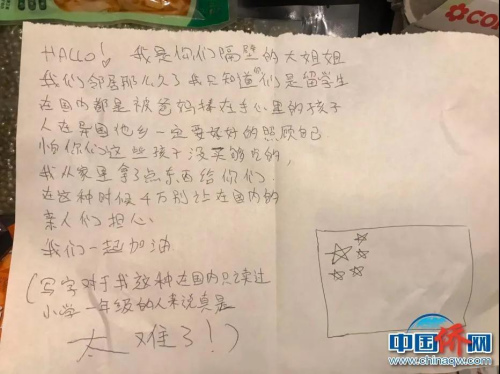 HALLO! 我是你们隔壁的大姐姐
我们邻居那么久了我只知道你们是留学生
在国内都是被爸妈捧在手心里的孩子
人在异国他乡一定要好好的照顾自己
怕你们这些孩子没买够吃的,
我从家里拿了点东西给你们.
在这种时候千万别让在国内的
亲人们担心.
我们一起加油
(写字对于我这种在国内只读过
小学一年级的人来说真是
太难了!)
中国侨网
www.chinaqw.com